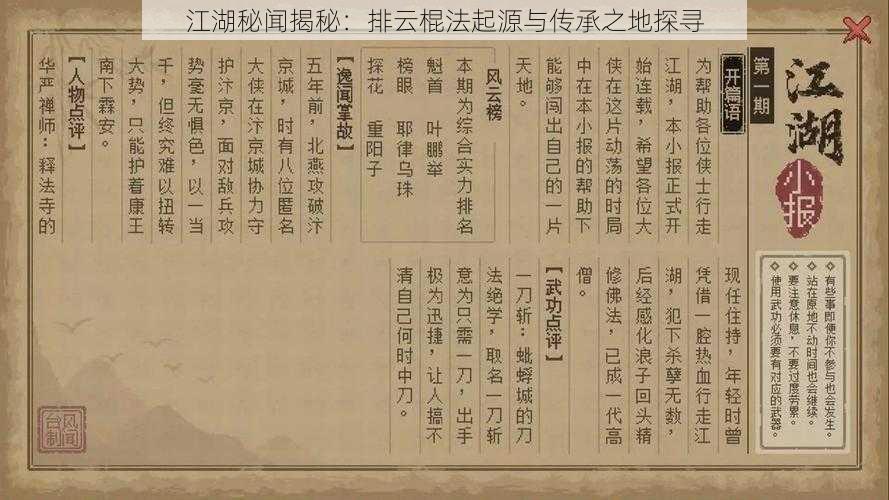 江湖秘闻揭秘：排云棍法起源与传承之地探寻
江湖
小报
第一期
【开篇语】
为帮助各位侠士行走
江湖，本小报正式开
始连载，希望各位大
侠在这片动荡的时局
中在本小报的帮助下
能够闯出自己的一片
天地。
风云榜
本期为综合实力排名
魁首 叶鹏举
榜眼 耶律乌珠
探花 重阳子
【逸闻掌故】
五年前，北燕攻破汴
京城，时有八位匿名
大侠在汴京城协力守
护汴京，面对敌兵攻
势毫无惧色，以一当
千，但终究难以扭转
大势，只能护着康王
南下霖安。
【人物点评】
华严禅师：释法寺的
现任住持，年轻时曾
凭借一腔热血行走江
湖，犯下杀孽无数，
后经感化浪子回头精
修佛法，已成一代高
僧。
【武功点评】
一刀斩：蚍蜉城的刀
法绝学，取名一刀斩
意为只需一刀，出手
极为迅捷，让人搞不
清自己何时中刀。
◇有些事即便你不参与也会发生。
◇站在原地不动时间也会继续。
◇要注意休息，不要过度劳累。
◇使用武功必须要有对应的武器。
风闻
台制